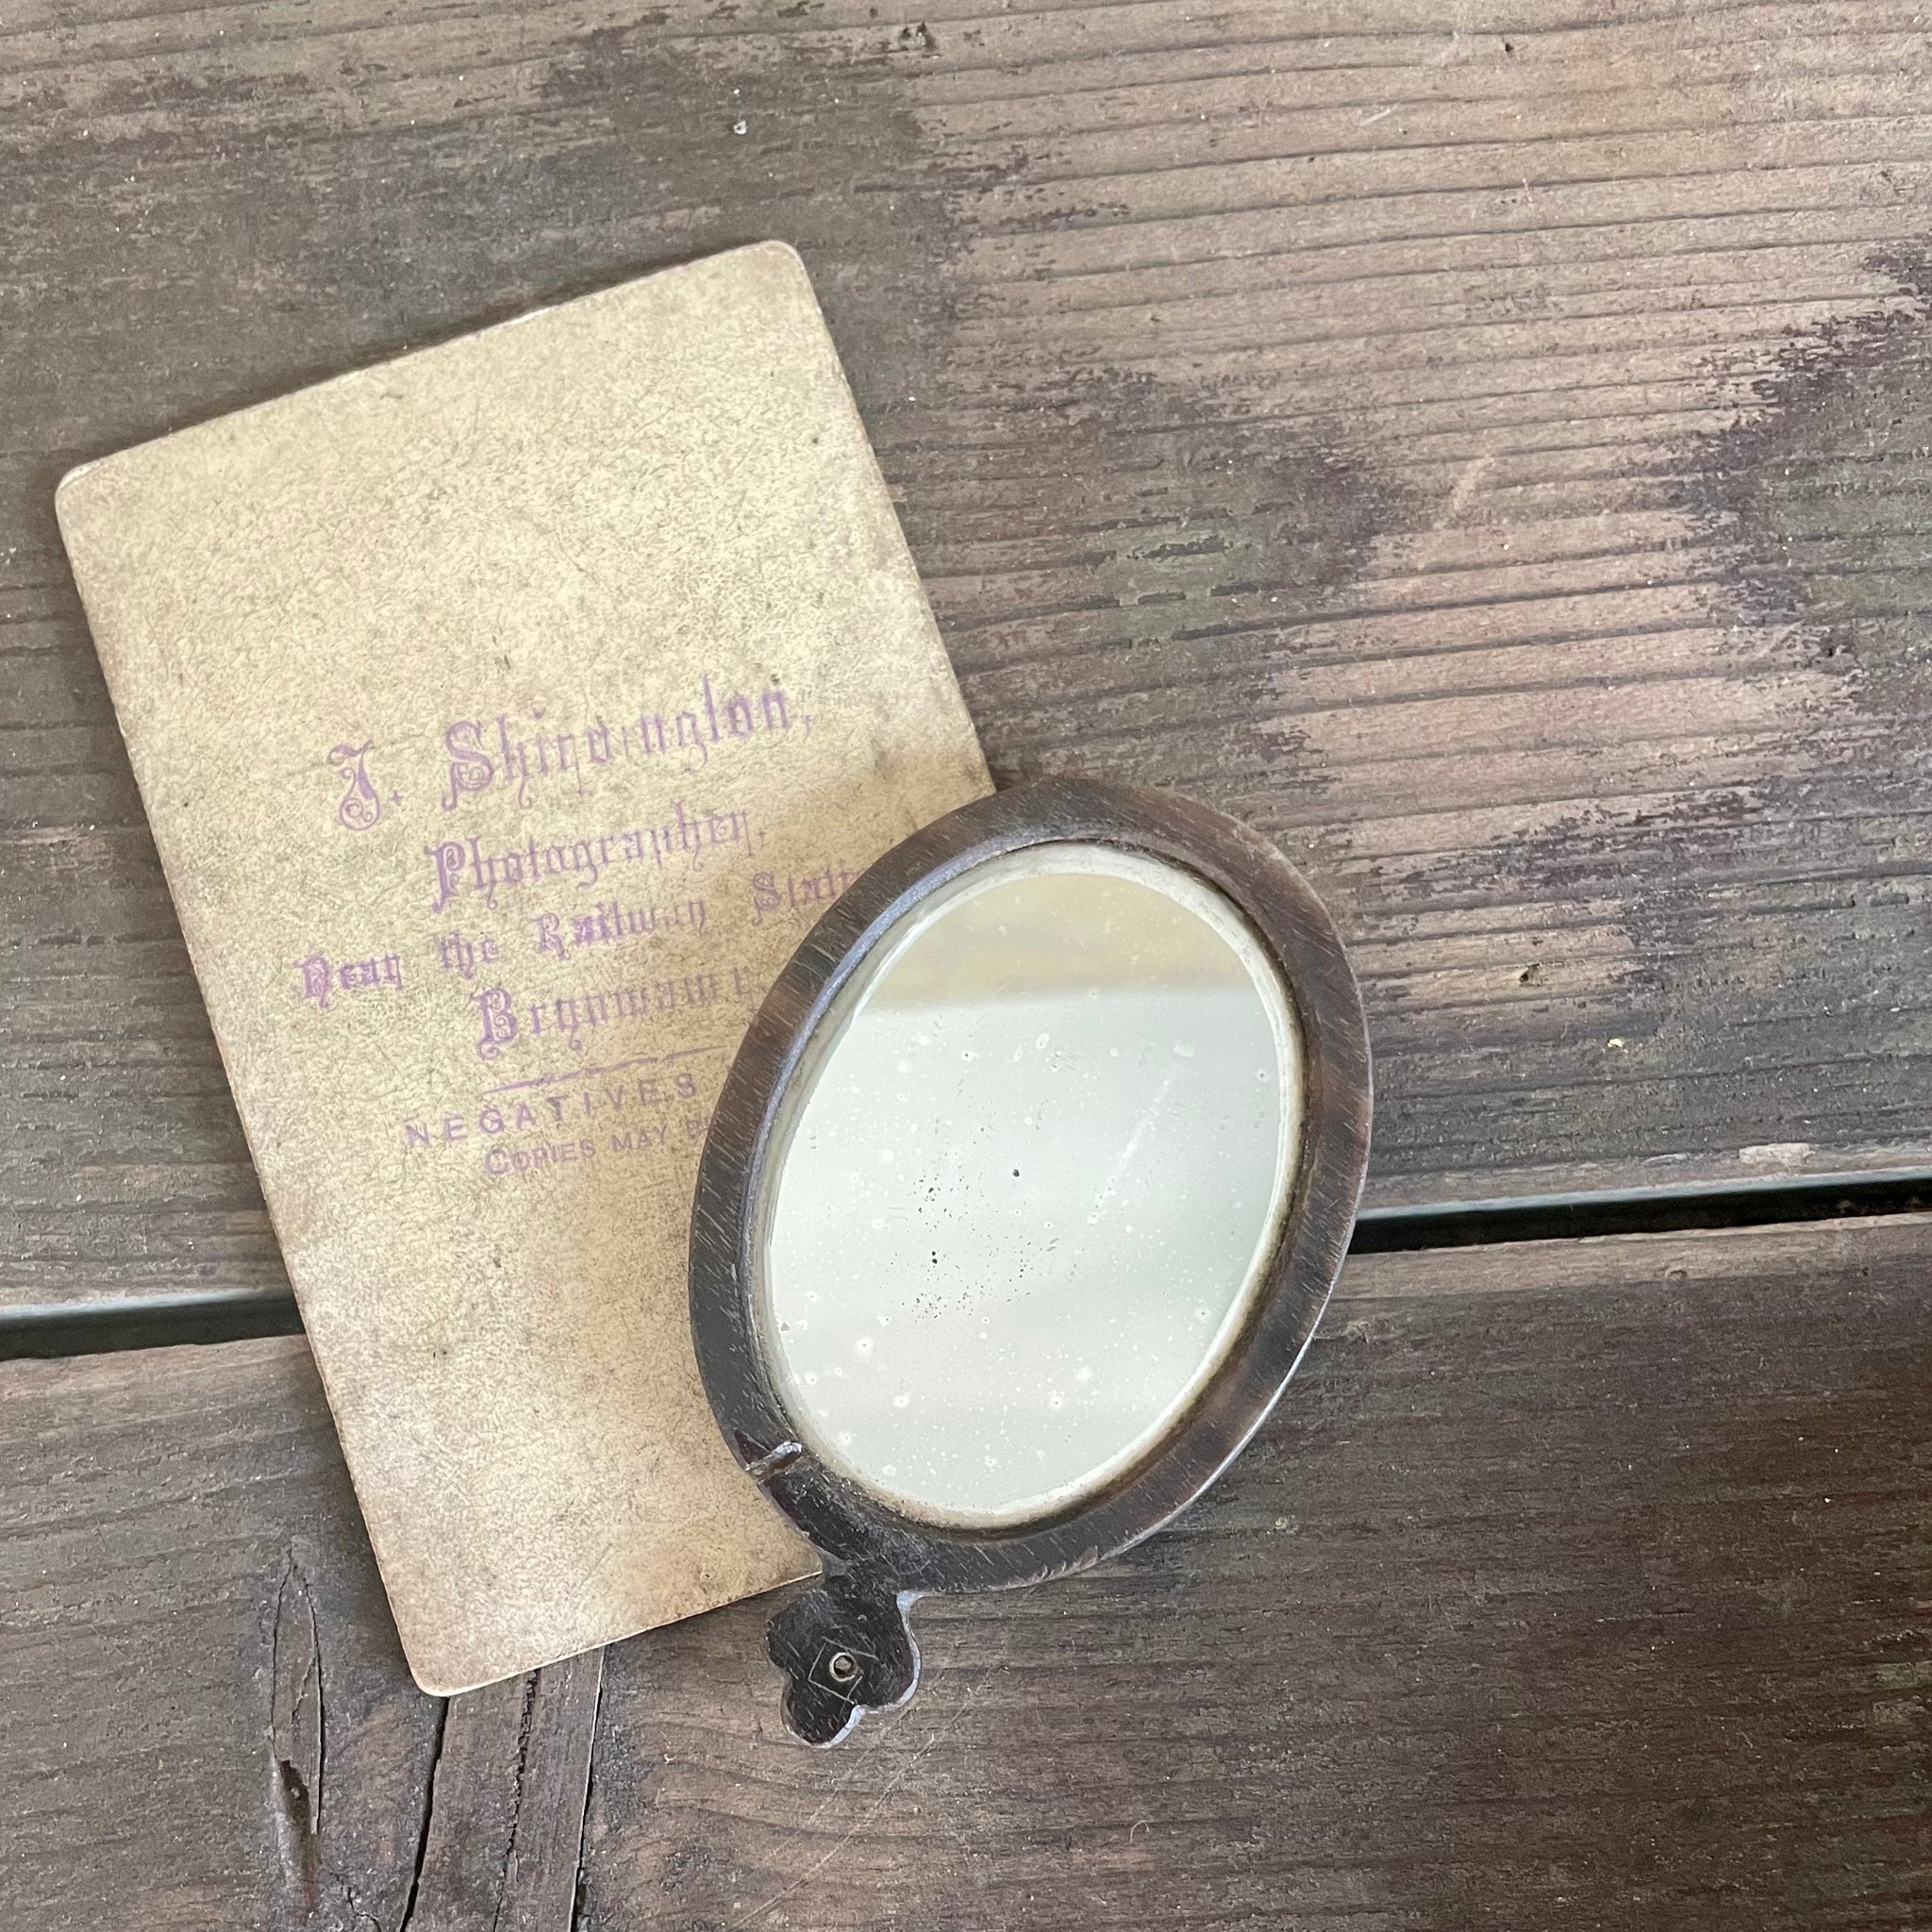 J. Shirvington,
Photographer,
Near the Railway Stati
Brynmawr
NEGATIVES
COPIES MAY B